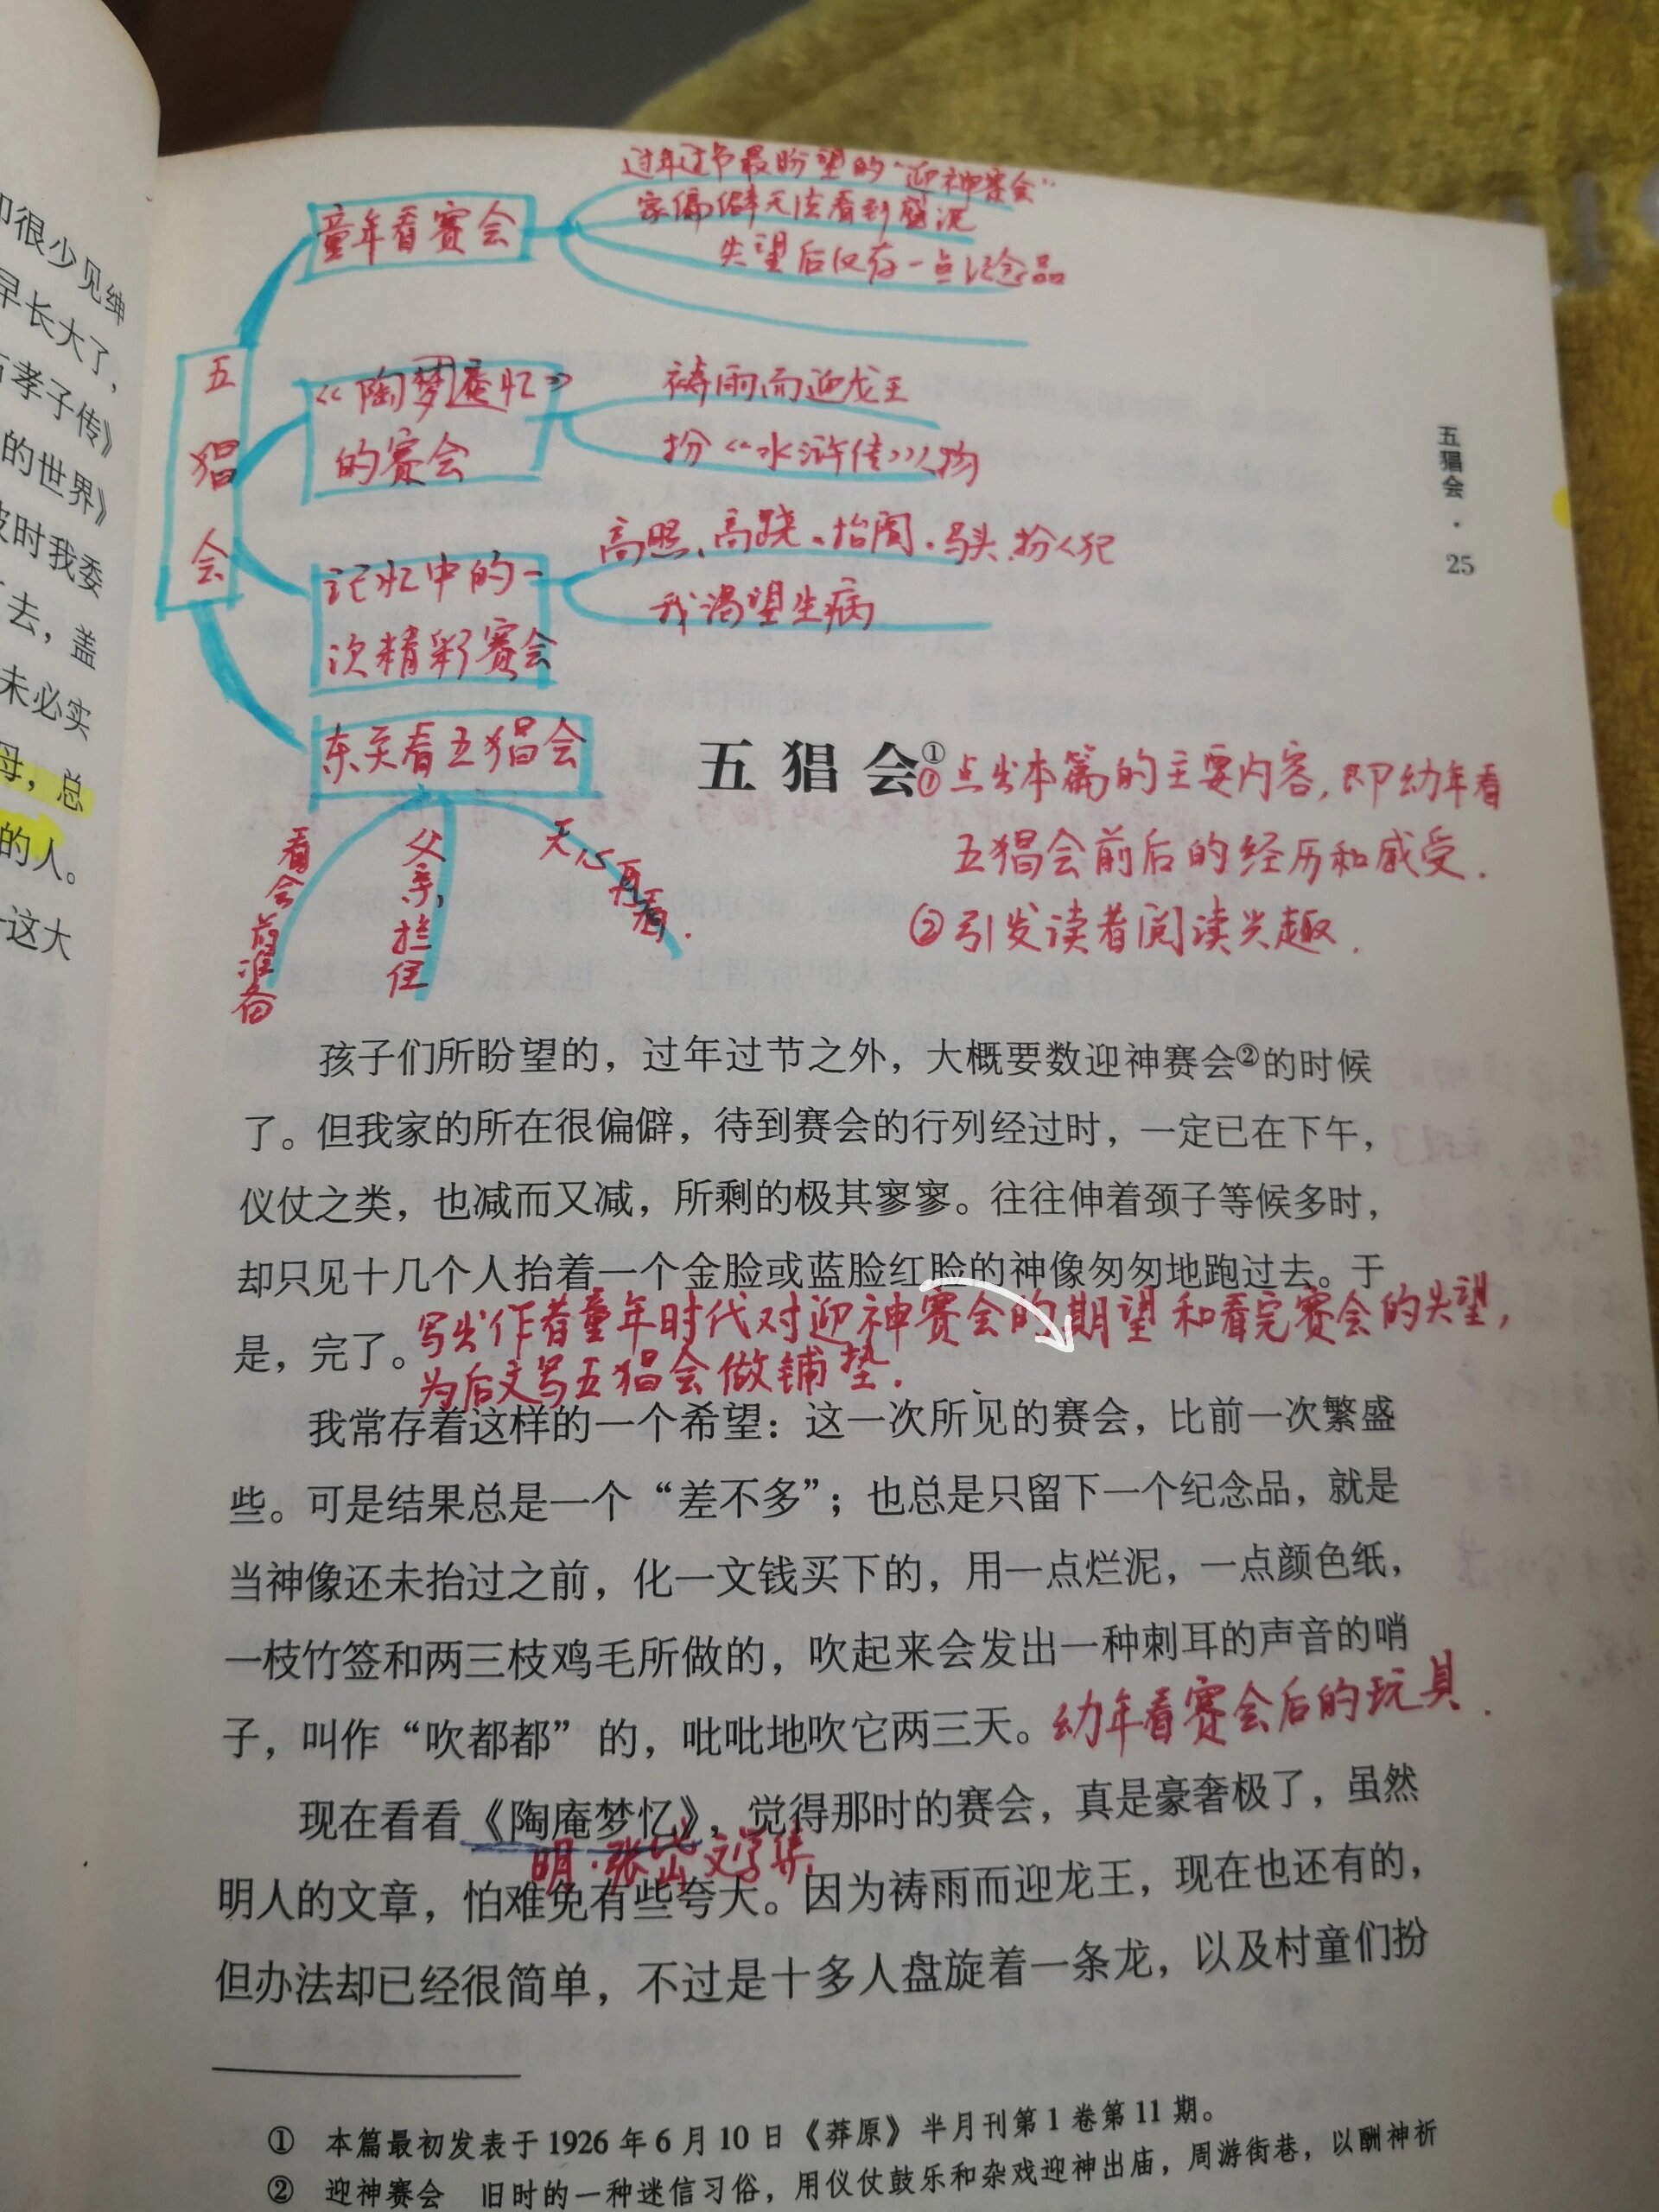 却很少见绅
早长大了，
孝子传》
的世界》
彼时我委
去，盖
未必实
母，总
的人。
这大
过年过节最盼望的“迎神赛会”
家偏僻无法看到盛况
失望后仅存一点纪念品
童年看赛会
五猖会
《陶梦庵忆》
的赛会
祷雨而迎龙王
扮《水浒传》人物
记忆中的一
次精彩赛会
高照、高跷、抬阁、马头、扮犯人
我渴望生病
东关看五猖会
看会前准备
父亲拦住
无心再看.
五猖会·25
五猖会①
①点出本篇的主要内容,即幼年看
五猖会前后的经历和感受.
②引发读者阅读兴趣.
孩子们所盼望的，过年过节之外，大概要数迎神赛会②的时候
了。但我家的所在很偏僻，待到赛会的行列经过时，一定已在下午，
仪仗之类，也减而又减，所剩的极其寥寥。往往伸着颈子等候多时，
却只见十几个人抬着一个金脸或蓝脸红脸的神像匆匆地跑过去。于
是，完了。
写出作者童年时代对迎神赛会的期望和看完赛会的失望,
为后文写五猖会做铺垫.
我常存着这样的一个希望：这一次所见的赛会，比前一次繁盛
些。可是结果总是一个“差不多”；也总是只留下一个纪念品，就是
当神像还未抬过之前，化一文钱买下的，用一点烂泥，一点颜色纸，
一枝竹签和两三枝鸡毛所做的，吹起来会发出一种刺耳的声音的哨
子，叫作“吹都都”的，吡吡地吹它两三天。
幼年看赛会后的玩具.
现在看看《陶庵梦忆》，觉得那时的赛会，真是豪奢极了，虽然
明·张岱文学集
明人的文章，怕难免有些夸大。因为祷雨而迎龙王，现在也还有的，
但办法却已经很简单，不过是十多人盘旋着一条龙，以及村童们扮
① 本篇最初发表于1926年6月10日《莽原》半月刊第1卷第11期。
② 迎神赛会 旧时的一种迷信习俗，用仪仗鼓乐和杂戏迎神出庙，周游街巷，以酬神祈